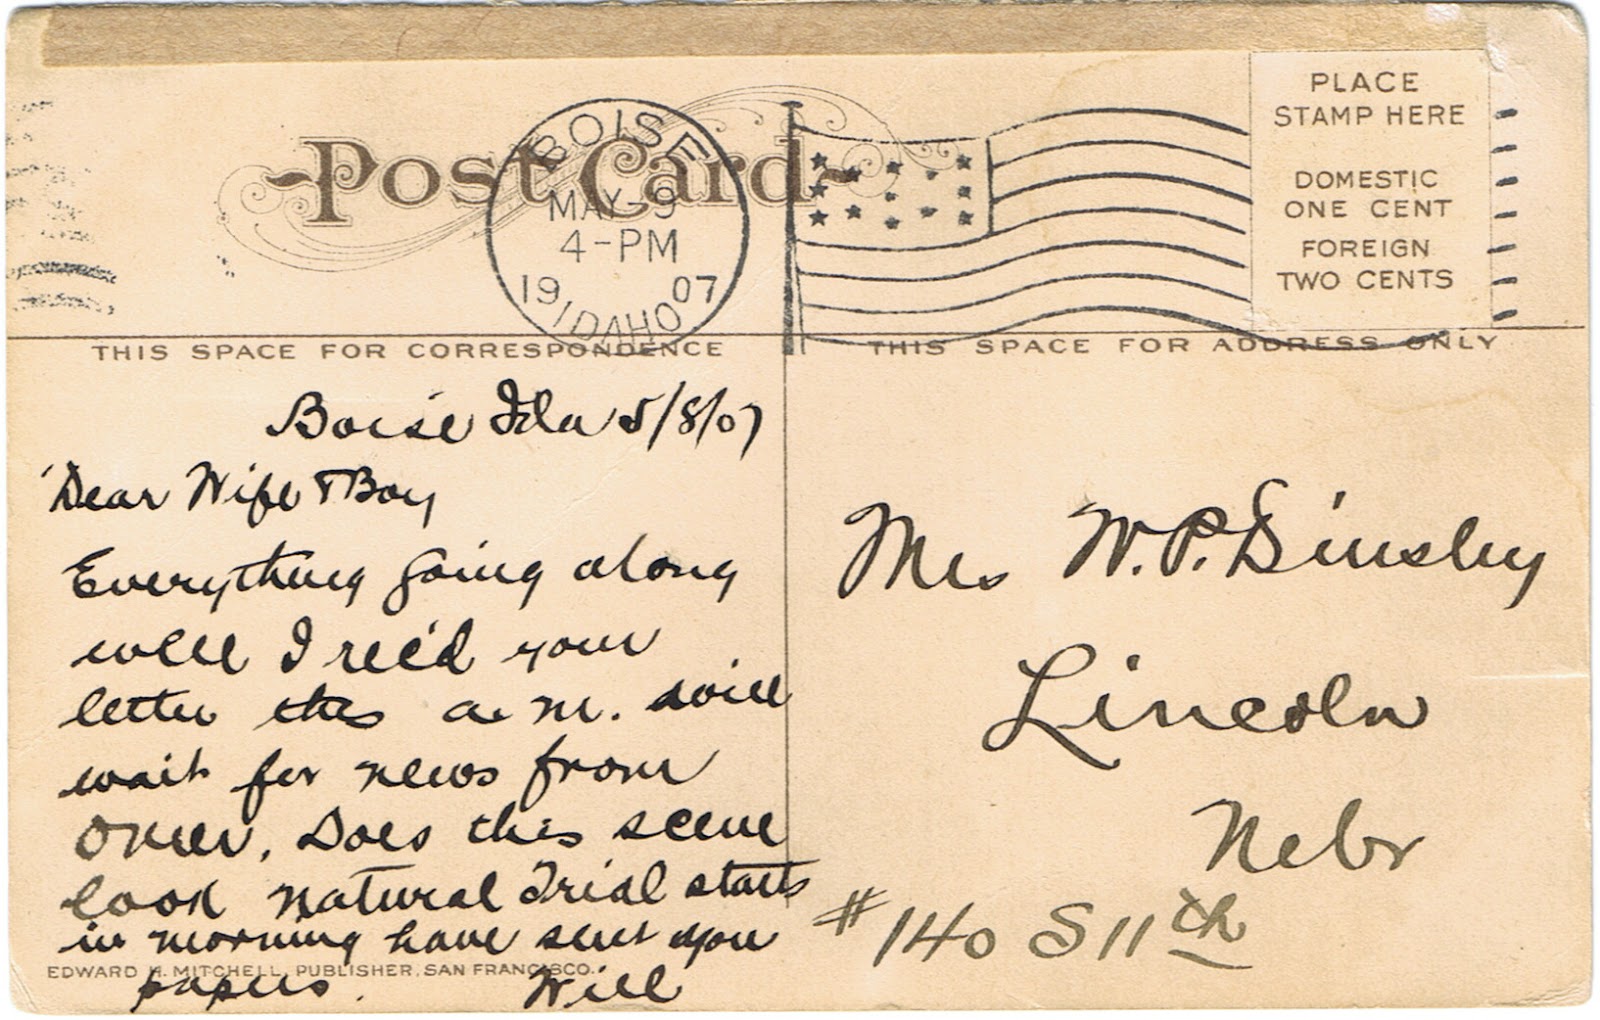 Post Card
BOISE
MAY-9
4-PM
1907
IDAHO
PLACE
STAMP HERE
DOMESTIC
ONE CENT
FOREIGN
TWO CENTS
THIS SPACE FOR CORRESPONDENCE
THIS SPACE FOR ADDRESS ONLY
Boise Ida 5/8/07
Dear Wife & Boy
Everything going along
well I rec'd your
letter this a.m. will
wait for news from
Omer. Does this scene
look natural Trial starts
in morning have sent you
papers. Will
EDWARD H. MITCHELL, PUBLISHER, SAN FRANCISCO.
Mrs W.P. Dinsley
Lincoln
Nebr
#140 S 11th